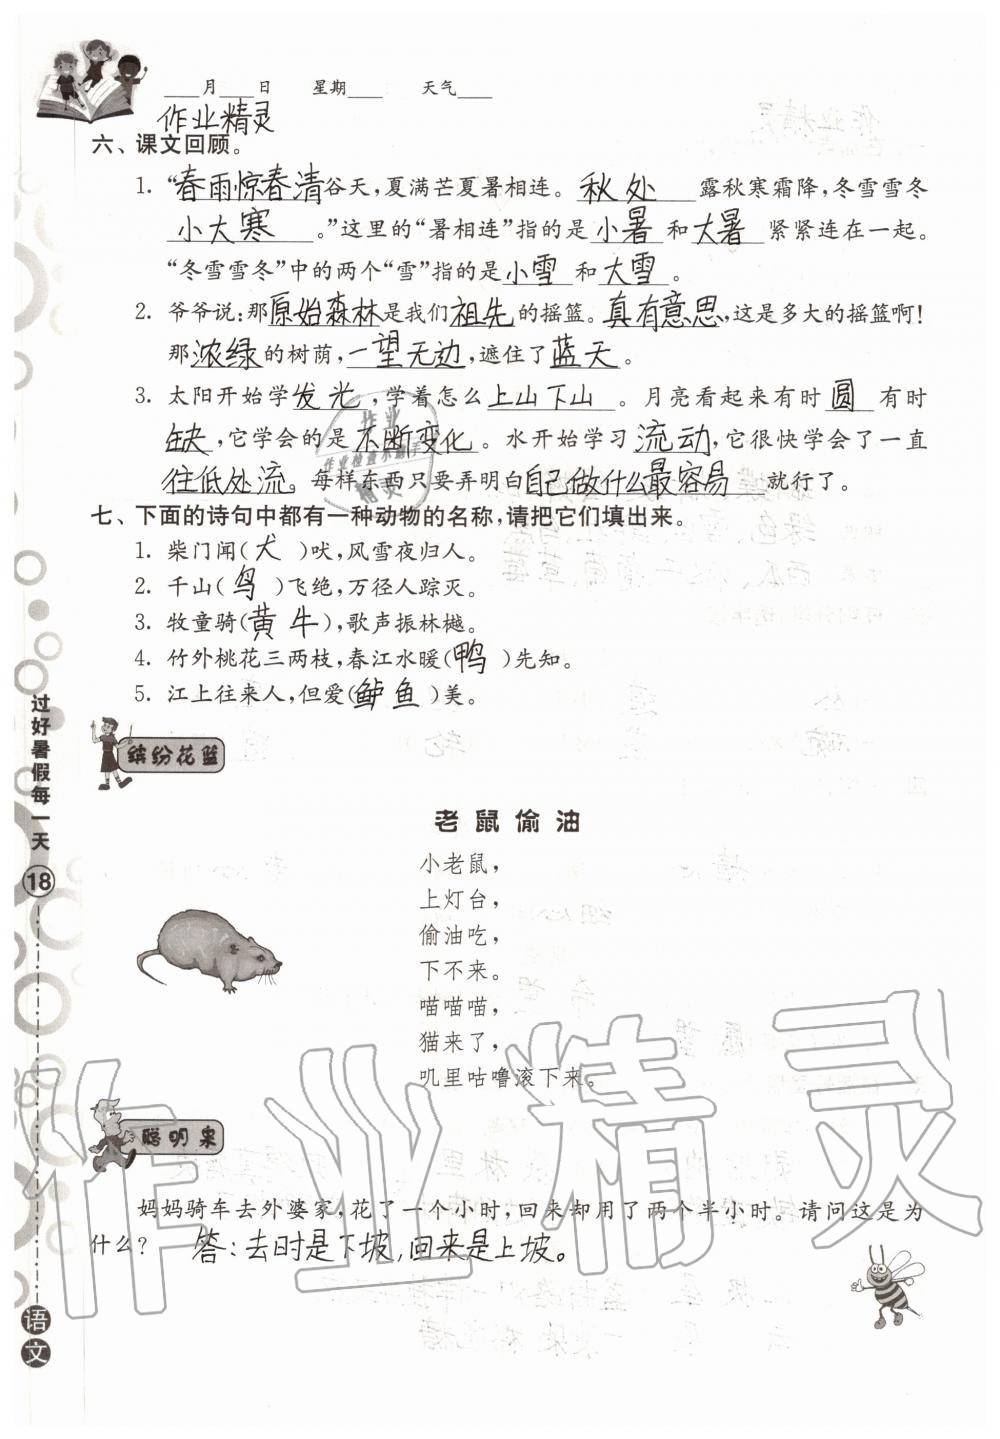 ____月____日 星期____ 天气____
作业精灵
六、课文回顾。
1. “春雨惊春清谷天，夏满芒夏暑相连。秋处露秋寒霜降，冬雪雪冬
小大寒。”这里的“暑相连”指的是小暑和大暑紧紧连在一起。
“冬雪雪冬”中的两个“雪”指的是小雪和大雪。
2. 爷爷说：那原始森林是我们祖先的摇篮。真有意思，这是多大的摇篮啊！
那浓绿的树荫，一望无边，遮住了蓝天。
3. 太阳开始学发光，学着怎么上山下山。月亮看起来有时圆有时
缺，它学会的是不断变化。水开始学习流动，它很快学会了一直
往低处流。每样东西只要弄明白自己做什么最容易就行了。
作业
作业检查小助手
精灵
七、下面的诗句中都有一种动物的名称，请把它们填出来。
1. 柴门闻（犬）吠，风雪夜归人。
2. 千山（鸟）飞绝，万径人踪灭。
3. 牧童骑（黄牛），歌声振林樾。
4. 竹外桃花三两枝，春江水暖（鸭）先知。
5. 江上往来人，但爱（鲈鱼）美。
缤纷花篮
老鼠偷油
小老鼠，
上灯台，
偷油吃，
下不来。
喵喵喵，
猫来了，
叽里咕噜滚下来。
聪明泉
妈妈骑车去外婆家，花了一个小时，回来却用了两个半小时。请问这是为
什么？ 答：去时是下坡，回来是上坡。
作业精灵
过好暑假每一天
18
语文